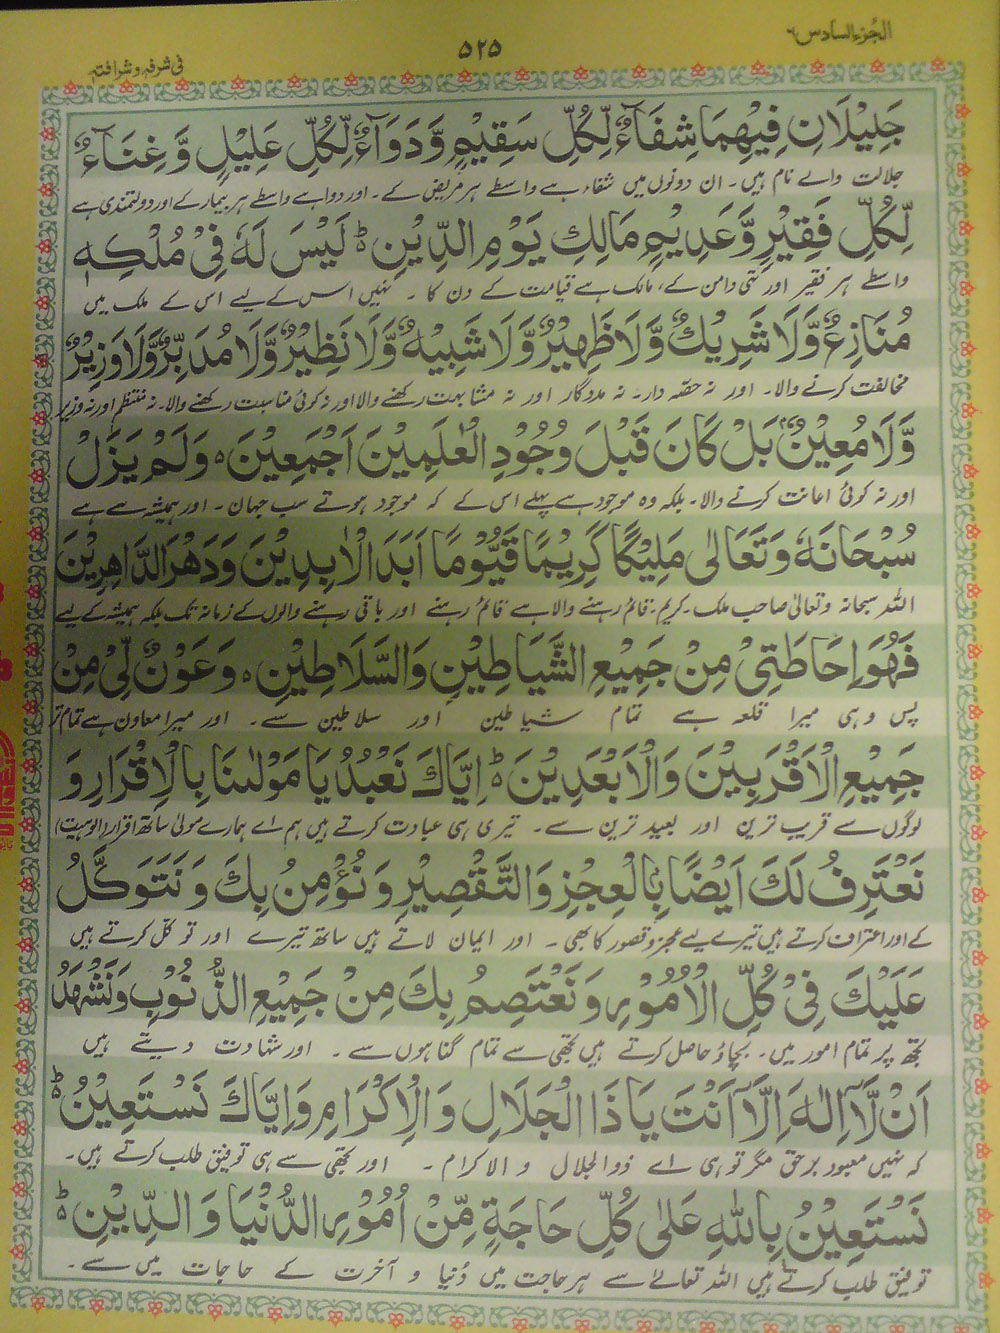 الجُزء السادس ٦
٥٢٥
فی شرفہ وشرافتہ
جَلِيْلَانِ فِيْهِمَا شِفَآءٌ لِّكُلِّ سَقِيْمٍ وَّدَوَآءٌ لِّكُلِّ عَلِيْلٍ وَّ غِنَآءٌ
جلالت والے نام ہیں۔ ان دونوں میں شفاء ہے واسطے ہر مریض کے۔ اور دوا ہے واسطے ہر بیمار کے اور دولتمندی ہے
لِّكُلِّ فَقِيْرٍ وَّعَدِيْمٍ مَالِكِ يَوْمِ الدِّيْنِ ؕ لَيْسَ لَهٗ فِىْ مُلْكِهٖ
واسطے ہر فقیر اور تہی دامن کے، مالک ہے قیامت کے دن کا ۔ نہیں اس کے لیے اس کے ملک میں
مُنَازِعٌ وَّلَا شَرِيْكٌ وَّلَا ظَهِيْرٌ وَّلَا شَبِيْهٌ وَّلَا نَظِيْرٌ وَّلَا مُدَبِّرٌ وَّلَا وَزِيْرٌ
مخالفت کرنے والا۔ اور نہ حصہ دار۔ نہ مددگار اور نہ مشابہت رکھنے والا اور نہ کوئی مناسبت رکھنے والا۔ نہ منتظم اور نہ وزیر
وَّلَا مُعِيْنٌ بَلْ كَانَ قَبْلَ وُجُوْدِ الْعٰلَمِيْنَ اَجْمَعِيْنَ ہ وَلَمْ يَزَلْ
اور نہ کوئی اعانت کرنے والا۔ بلکہ وہ موجود ہے پہلے اس کے کہ موجود ہوتے سب جہان۔ اور ہمیشہ سے ہے
سُبْحَانَهٗ وَتَعَالٰى مَلِيْكًا كَرِيْمًا قَيُّوْمًا اَبَدَ الْاٰبِدِيْنَ وَدَهْرَ الدَّاهِرِيْنَ
اللہ سبحانہ وتعالیٰ صاحب ملک۔ کریم۔ قائم رہنے والا ہے قائم رہنے اور باقی رہنے والوں کے زمانہ تک بلکہ ہمیشہ کے لیے
فَهُوَ اِحَاطَتِىْ مِنْ جَمِيْعِ الشَّيَاطِيْنِ وَالسَّلَاطِيْنِ ہ وَعَوْنٌ لِّىْ مِنْ
پس وہی میرا قلعہ ہے تمام شیاطین اور سلاطین سے۔ اور میرا معاون ہے تمام تر
جَمِيْعِ الْاَقْرَبِيْنَ وَالْاَبْعَدِيْنَ ؕ اِيَّاكَ نَعْبُدُ يَا مَوْلٰنَا بِالْاِقْرَارِ وَ
لوگوں سے قریب ترین اور بعید ترین سے۔ تیری ہی عبادت کرتے ہیں ہم اے ہمارے مولیٰ ساتھ اقرار (الوہیت)
نَعْتَرِفُ لَكَ اَيْضًا بِالْعِجْزِ وَالتَّقْصِيْرِ وَنُؤْمِنُ بِكَ وَنَتَوَكَّلُ
کے اور اعتراف کرتے ہیں تیرے لیے عجز و قصور کا بھی۔ اور ایمان لاتے ہیں ساتھ تیرے اور توکل کرتے ہیں
عَلَيْكَ فِىْ كُلِّ الْاُمُوْرِ وَنَعْتَصِمُ بِكَ مِنْ جَمِيْعِ الذُّنُوْبِ وَنَشْهَدُ
تجھ پر تمام امور میں۔ بچاؤ حاصل کرتے ہیں تجھی سے تمام گناہوں سے ۔ اور شہادت دیتے ہیں
اَنْ لَّآ اِلٰهَ اِلَّآ اَنْتَ يَا ذَا الْجَلَالِ وَالْاِكْرَامِ وَاِيَّاكَ نَسْتَعِيْنُ ؕ
کہ نہیں معبود برحق مگر تو ہی اے ذوالجلال والاکرام ۔ اور تجھی سے ہی توفیق طلب کرتے ہیں۔
نَسْتَعِيْنُ بِاللّٰهِ عَلٰى كُلِّ حَاجَةٍ مِّنْ اُمُوْرِ الدُّنْيَا وَالدِّيْنِ ؕ
توفیق طلب کرتے ہیں اللہ تعالیٰ سے ہر حاجت میں دُنیا و آخرت کے حاجات میں سے۔